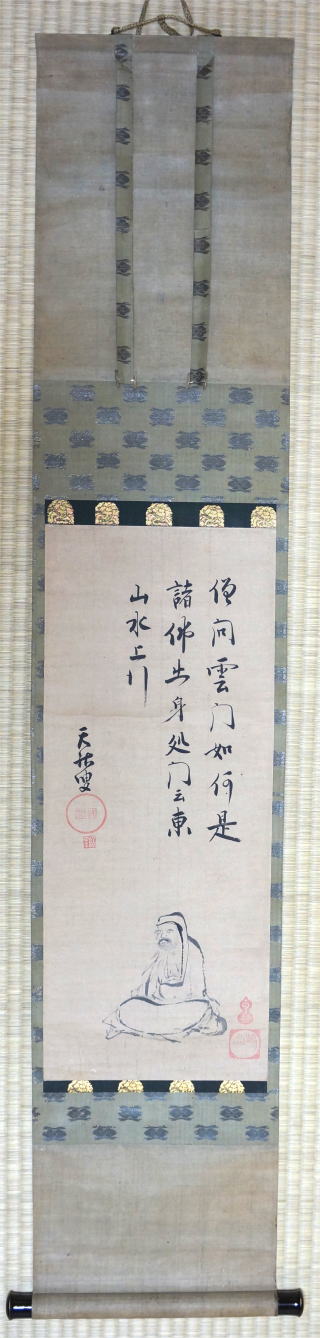 僧問雲门如何是
諸佛出身処门云東
山水上行
天祐叟